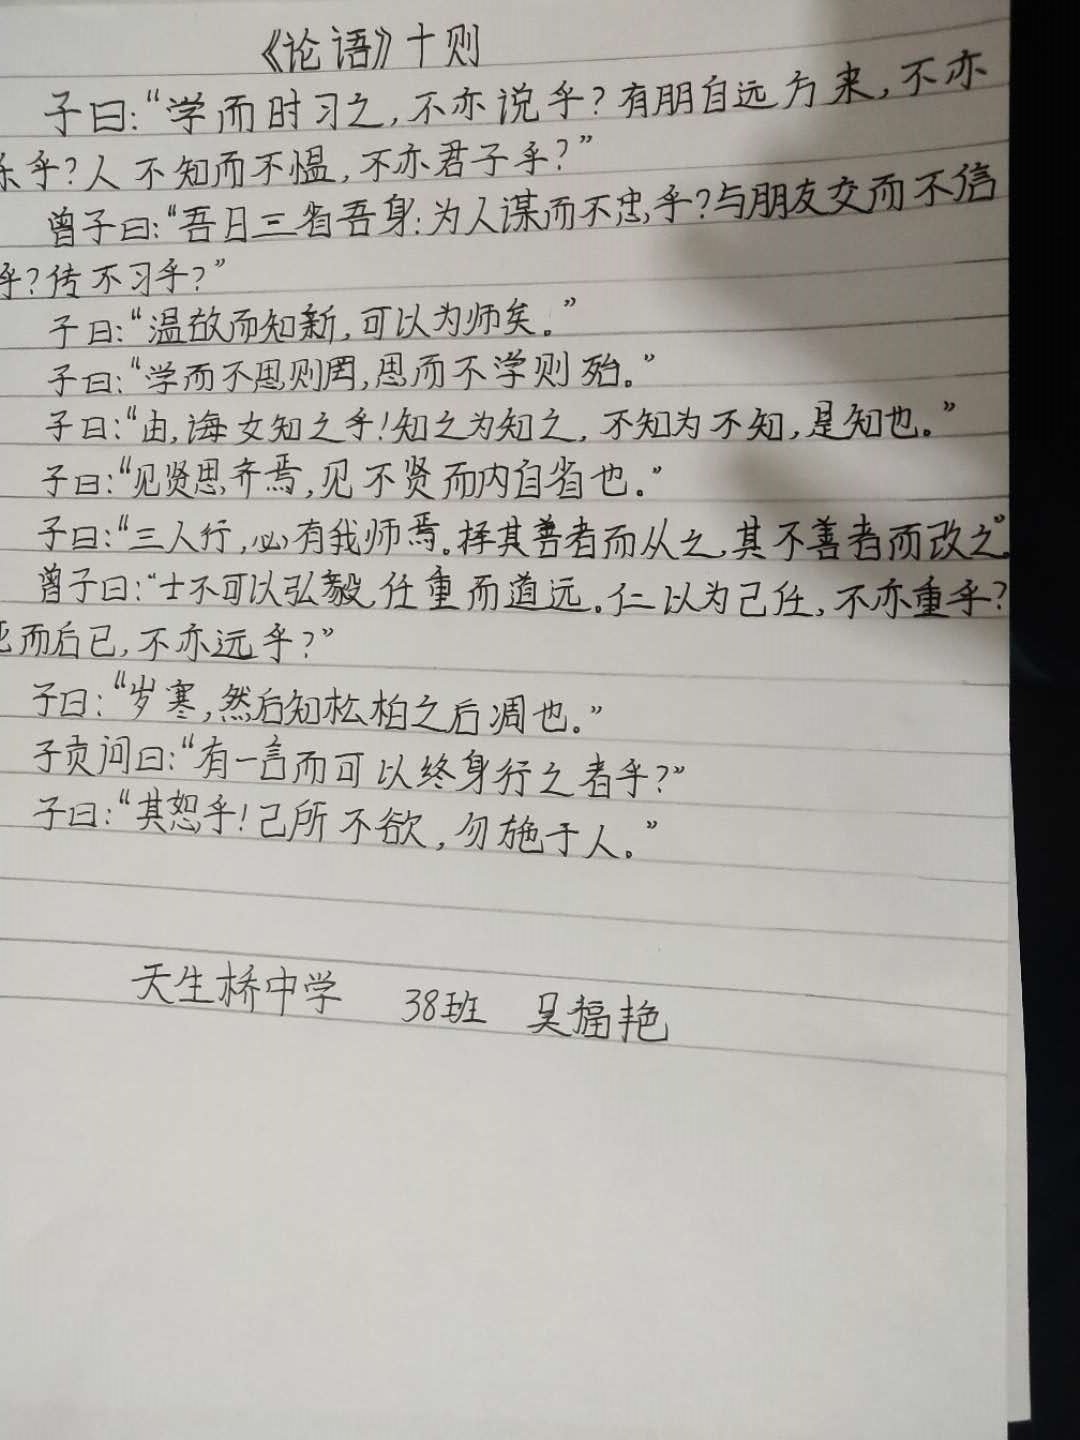 《论语》十则
子曰：“学而时习之，不亦说乎？有朋自远方来，不亦
乐乎？人不知而不愠，不亦君子乎？”
曾子曰：“吾日三省吾身：为人谋而不忠，乎？与朋友交而不信
乎？传不习乎？”
子曰：“温故而知新，可以为师矣。”
子曰：“学而不思则罔，思而不学则殆。”
子曰：“由，诲女知之乎！知之为知之，不知为不知，是知也。”
子曰：“见贤思齐焉，见不贤而内自省也。”
子曰：“三人行，必有我师焉。择其善者而从之，其不善者而改之。”
曾子曰：“士不可以弘毅，任重而道远。仁以为己任，不亦重乎？
死而后已，不亦远乎？”
子曰：“岁寒，然后知松柏之后凋也。”
子贡问曰：“有一言而可以终身行之者乎？”
子曰：“其恕乎！己所不欲，勿施于人。”
天生桥中学 38班 吴福艳